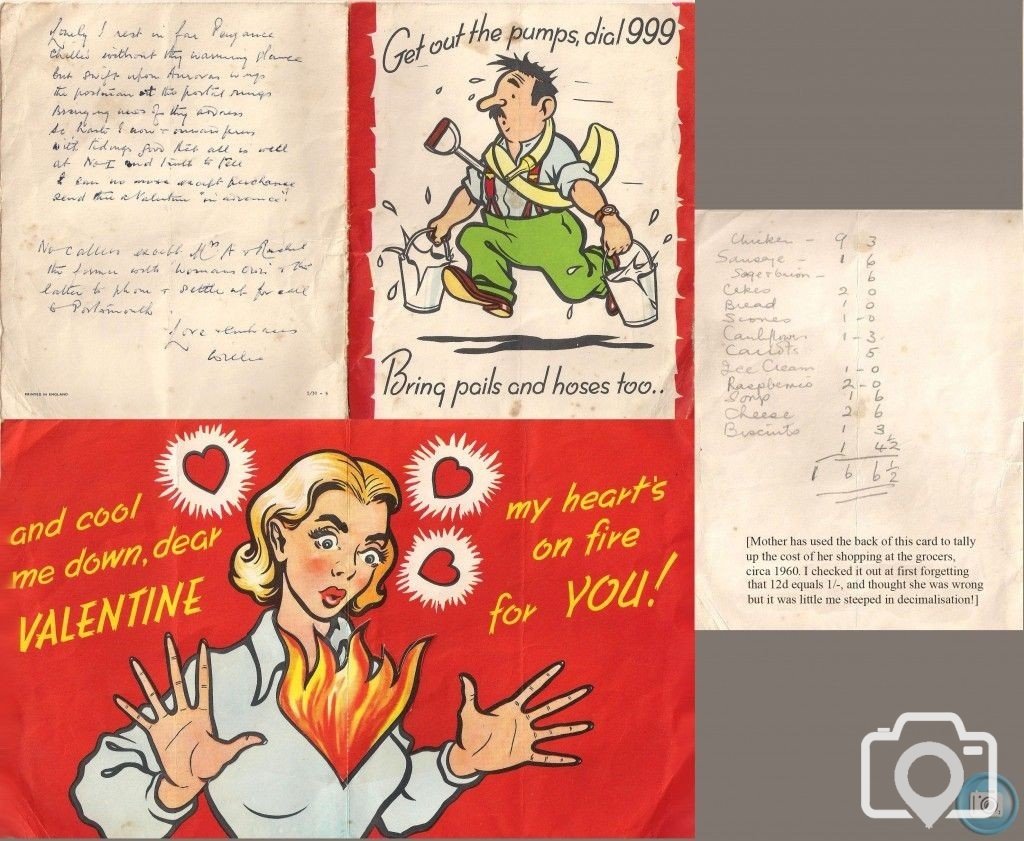 Lonely I rest in far Penzance
Chilled without thy warming glance
but swift upon Auroras wings
the postman at the portal rings
Bringing news of thy address
So haste I now & onward press
with tidings good that all is well
at No I and truth to tell
I can no more except perchance
send thee a Valentine "in advance"!
No callers except Mrs A & Rachel
the former with 'Womans Own' & the
latter to phone & settle up for call
to Portsmouth.
Love & embraces
Willie
PRINTED IN ENGLAND
Get out the pumps, dial 999
Bring pails and hoses too..
and cool
me down, dear
VALENTINE
my heart's
on fire
for YOU!
Chicken - 9 3
Sausage - 1 6
Sage & onion - 6
Cakes 2 0
Bread 1 0
Scones 1 - 0
Cauliflower 1 - 3
Carrots 5
Ice Cream 1 - 0
Raspberries 2 - 0
Soup 1 6
Cheese 2 6
Biscuits 1 3
1 4½
1 6 6½
[Mother has used the back of this card to tally
up the cost of her shopping at the grocers,
circa 1960. I checked it out at first forgetting
that 12d equals 1/-, and thought she was wrong
but it was little me steeped in decimalisation!]